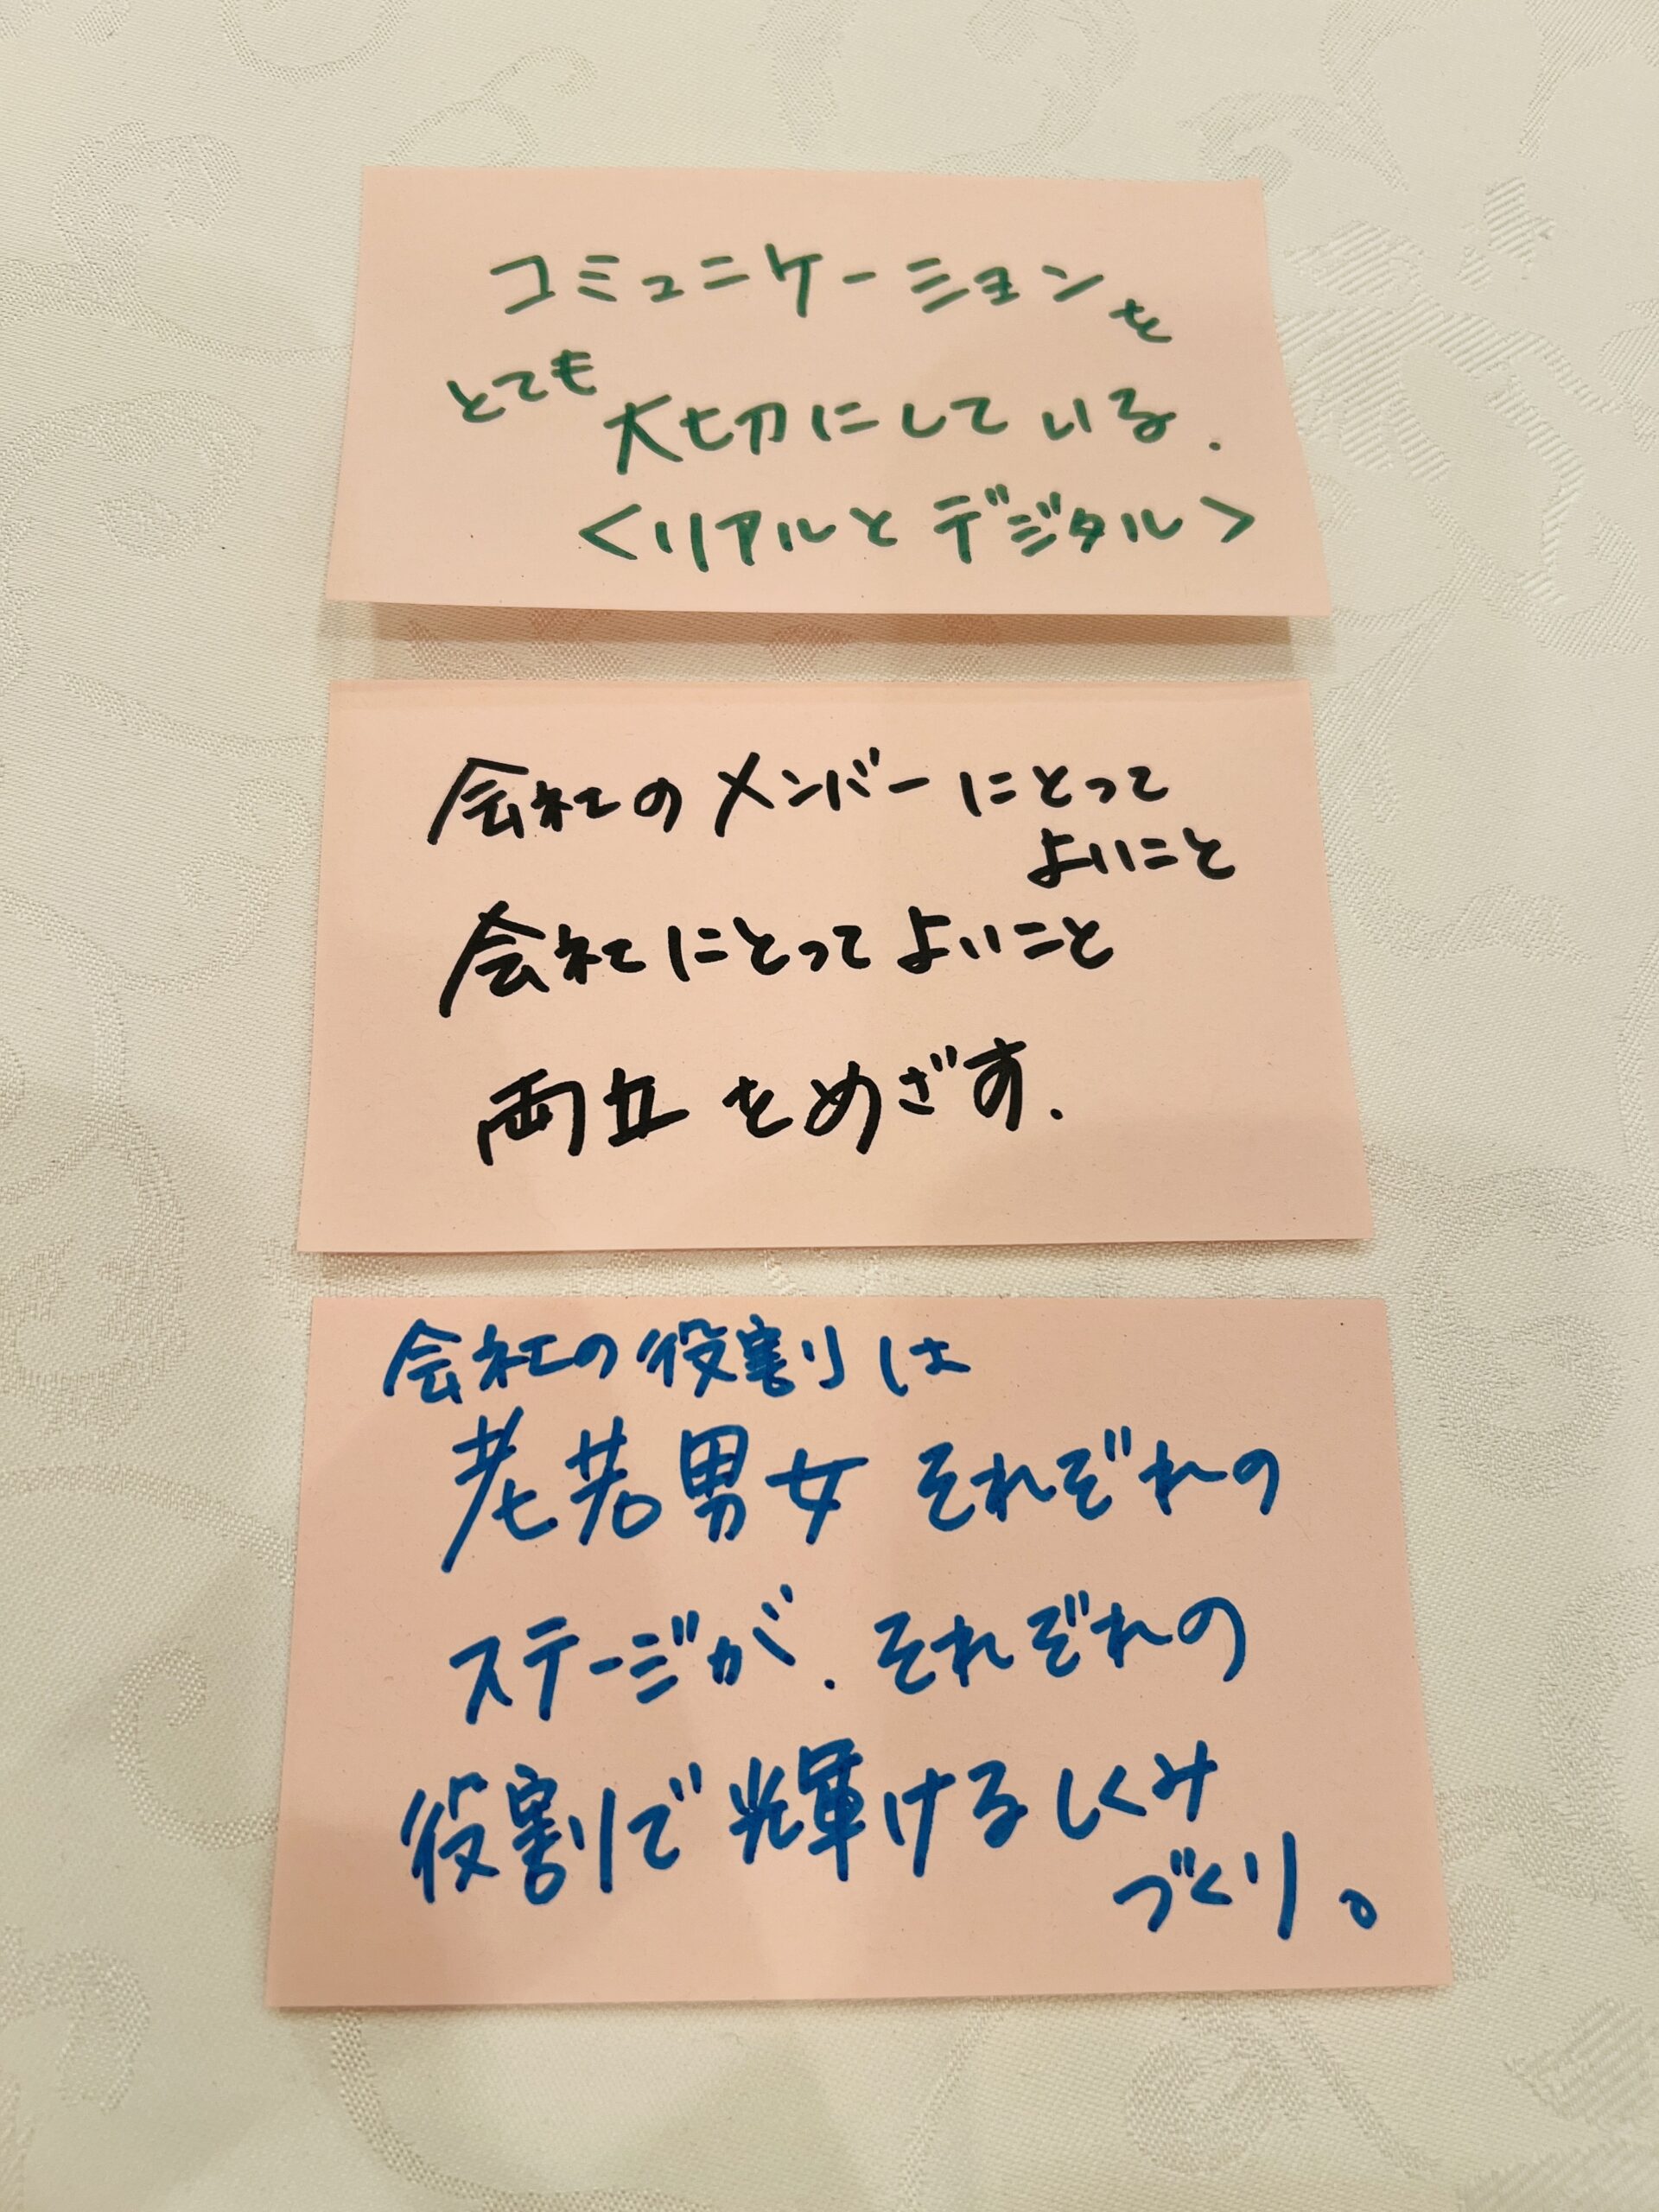 コミュニケーションを
とても大切にしている.
<リアルとデジタル>
会社のメンバーにとって
よいこと
会社にとってよいこと
両立をめざす.
会社の役割は
老若男女それぞれの
ステージが.それぞれの
役割で輝けるしくみ
づくり。